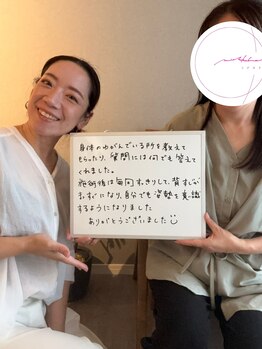 身体のゆがんでいる所を教えて
もらったり、質問には何でも答えて
くれました。
施術後は毎回すっきりして、背すじが
まっすぐになり、自分でも姿勢を意識
するようになりました
ありがとうございました